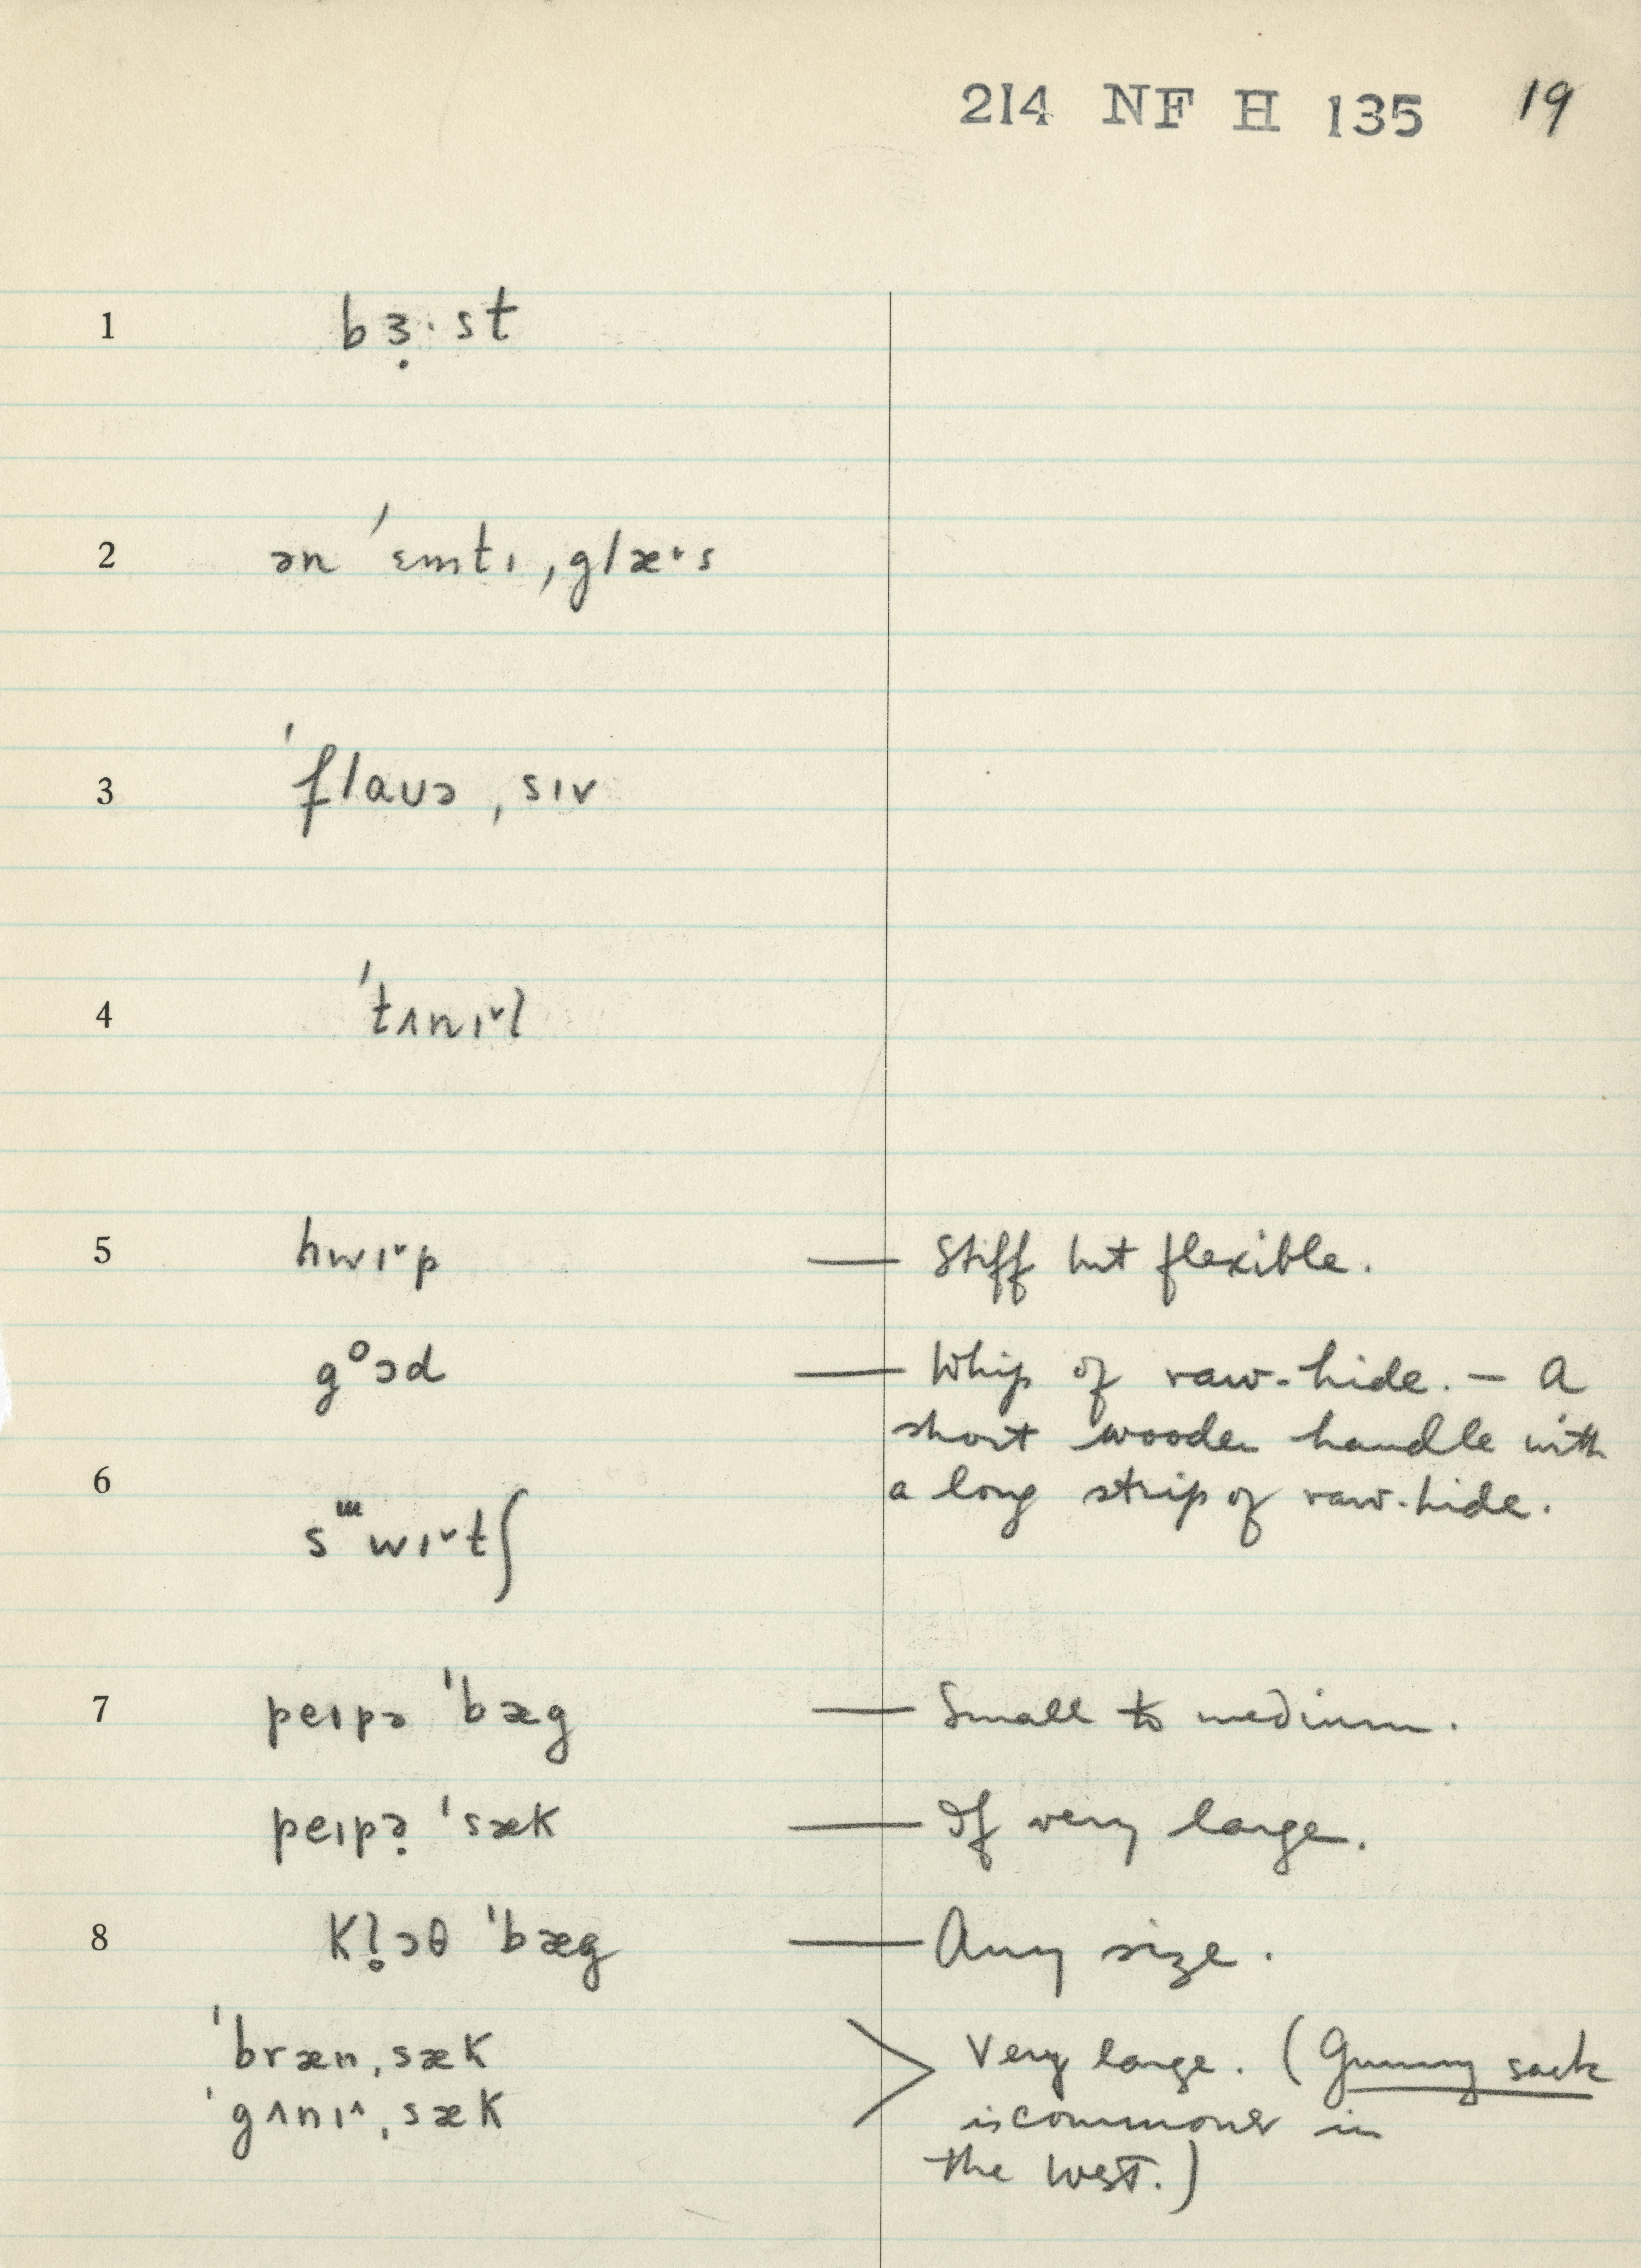 214 NF H 135 19
1 bɜ̣·st
2 ən ˈɛmtɪ ˌglæ˞s
3 ˈflaʊə ˌsɪv
4 ˈtʌnɪ˅ɫ
5 hwɪ˅p — Stiff but flexible.
gᵒɔd — Whip of raw-hide. — A
short wooden handle with
6 a long strip of raw-hide.
sᵚwɪ˅tʃ
7 peɪpə ˈbæg — Small to medium.
peɪpə̣ ˈsæk — If very large.
8 kɫ̥ɔθ ˈbæg — Any size.
ˈbræn ˌsæk > Very large. (Gunny sack
ˈgʌnɪ^ ˌsæk is commoner in
the West.)